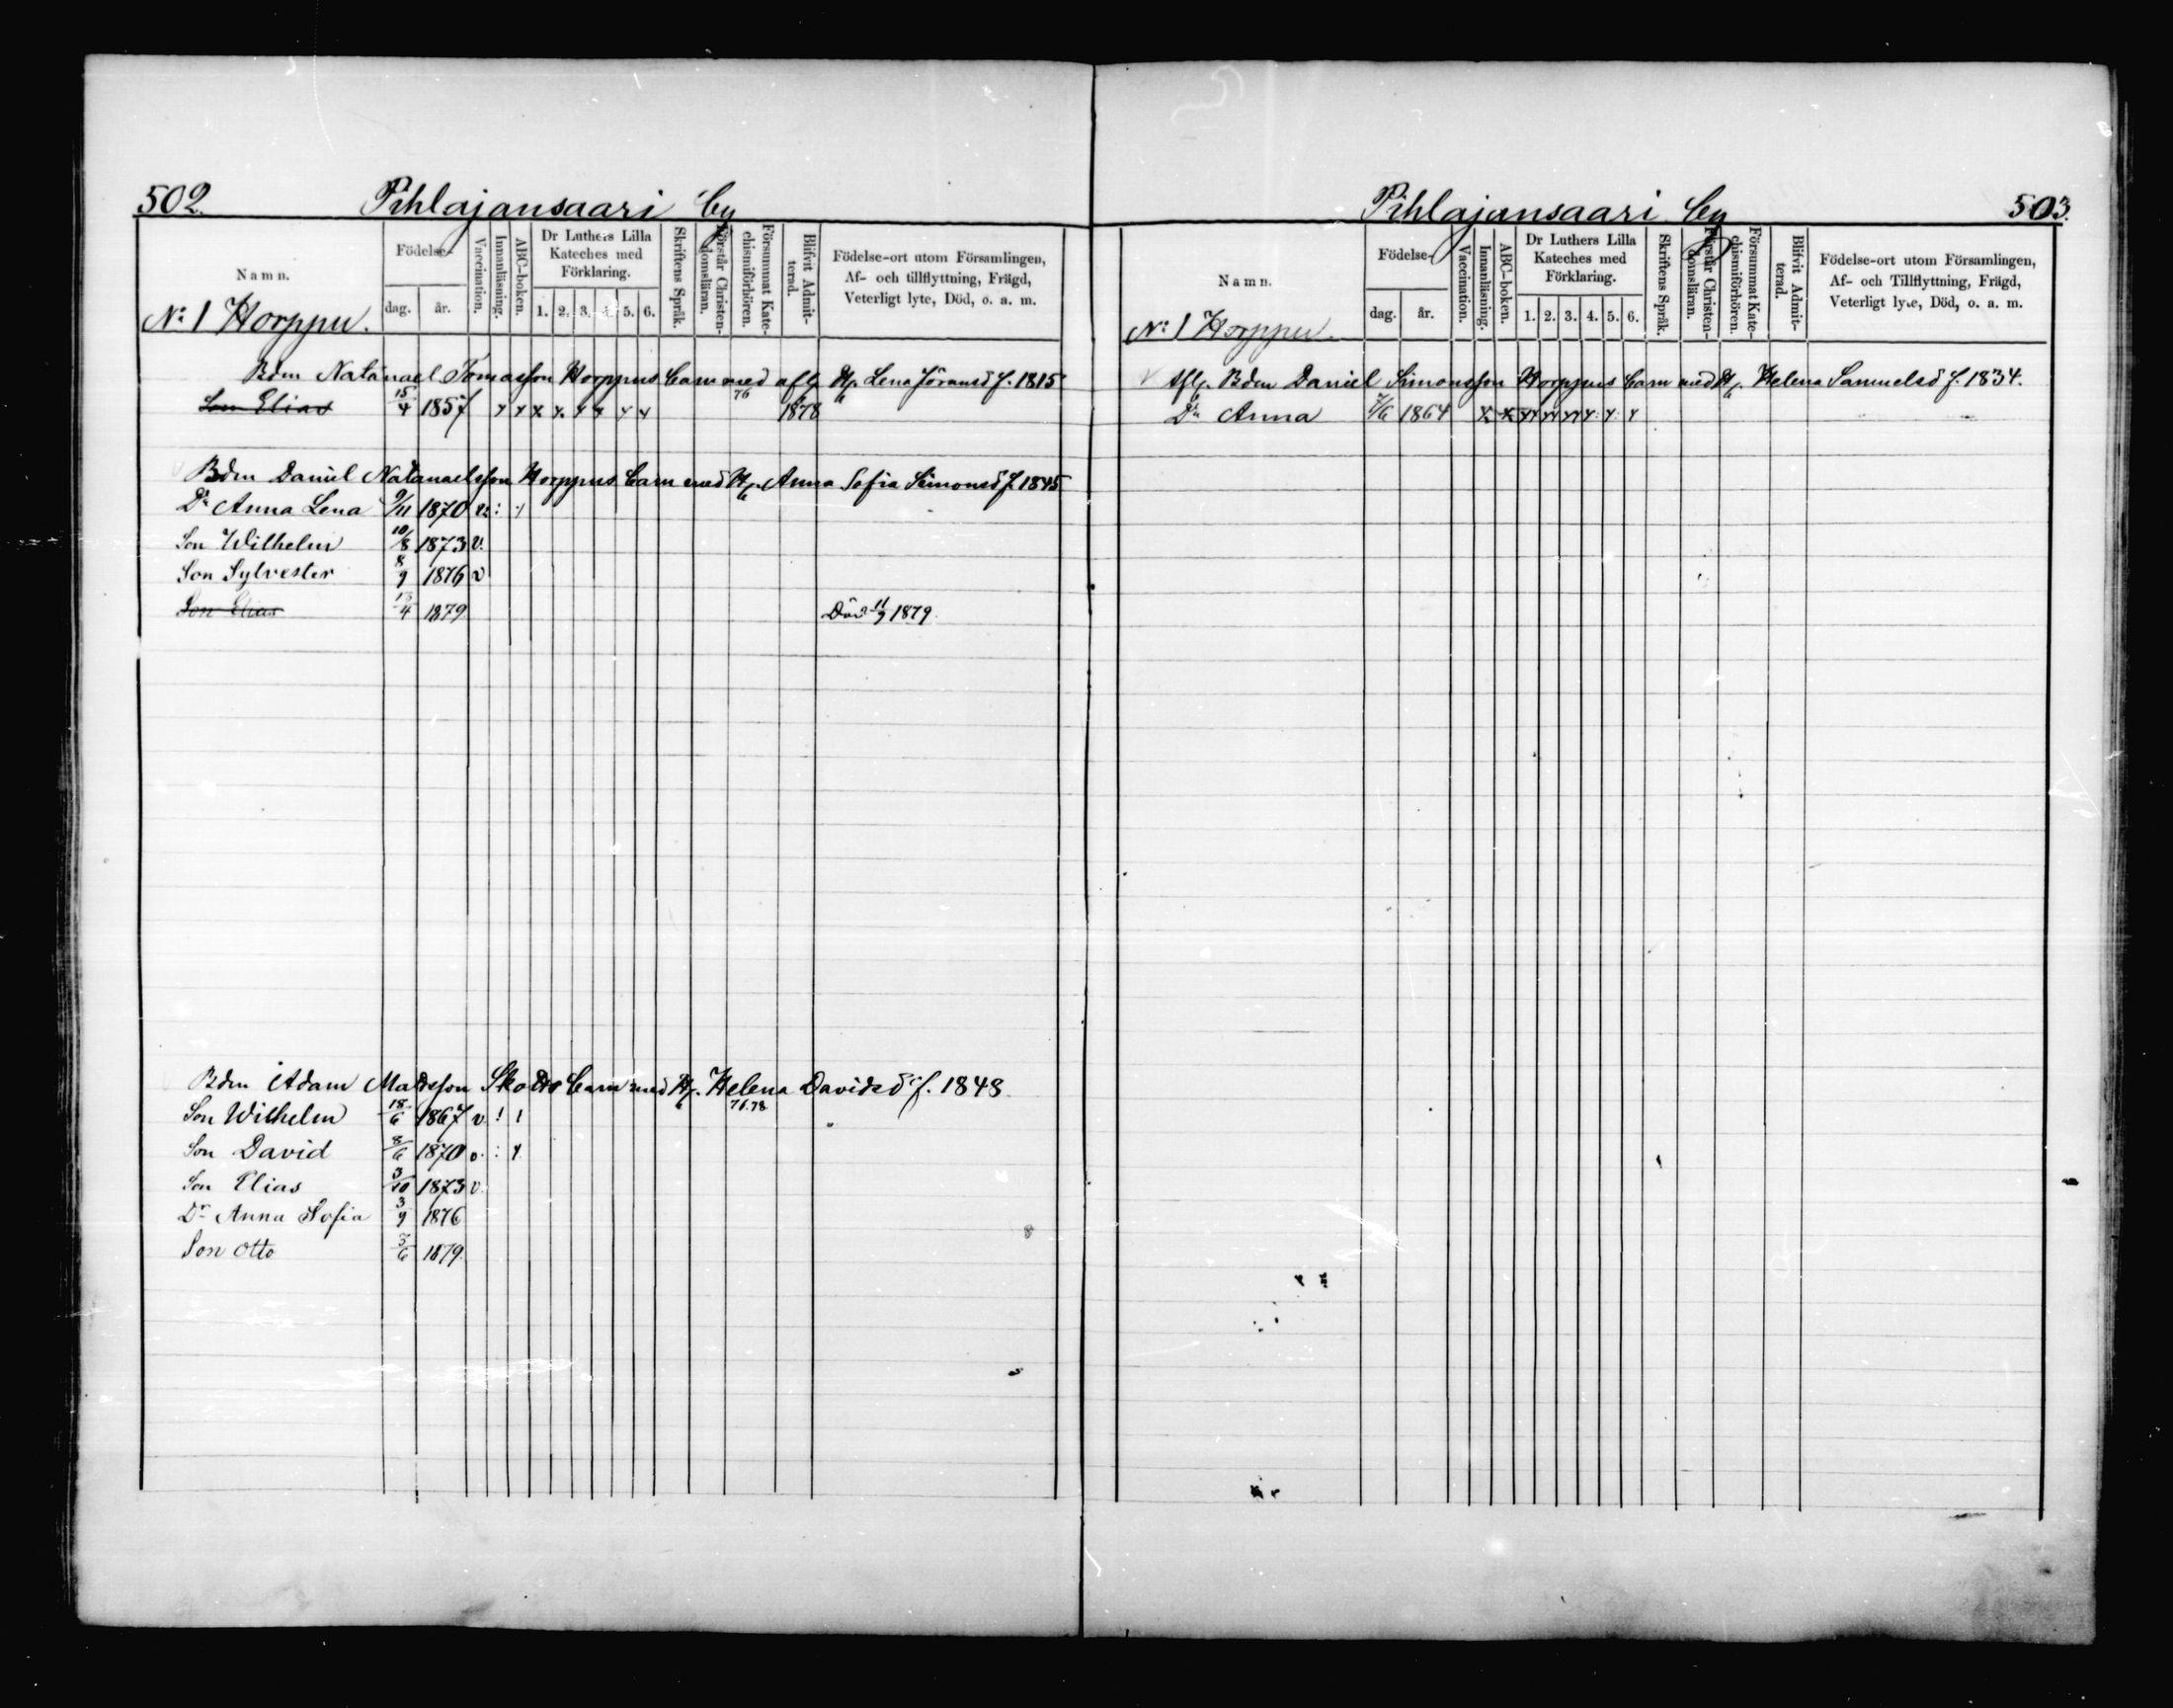 502.
Pihlajansaari by
Namn.
Födelse-
dag.
år.
Vaccination.
Innanläsning.
ABC-boken.
Dr Luthers Lilla Kateches med Förklaring.
1. 2. 3. 4. 5. 6.
Skriftens Språk.
Förstår Christen-domsläran.
Försummat Kate-chismiförhören.
Blifvit Admit-terad.
Födelse-ort utom Församlingen,
Af- och tillflyttning, Frägd,
Veterligt lyte, Död, o. a. m.
No: 1 Horppu.
Bdm Natanael Tomasson Horppus barn med afl. Hu Lena Jöransd f. 1815
Son Elias 15/4 1857 76 1878
Bdm Daniel Natanaelsson Horppus barn med Hu Anna Sofia Simonsd f. 1845
Dr Anna Lena 9/11 1870 v:
Son Wilhelm 10/8 1873 v.
Son Sylvester 8/9 1876 v
Son Elias 13/4 1879 Död 11/9 1879
Bdm Adam Matsson barn med Hu. Helena Davidsd f. 1848
Son Wilhelm 18/6 1867 v 78
Son David 8/6 1870 v.
Son Elias 3/10 1873 v.
Dr Anna Sofia 3/9 1876
Son Otto 3/6 1879
Pihlajansaari by
503.
Namn.
Födelse-
dag.
år.
Vaccination.
Innanläsning.
ABC-boken.
Dr Luthers Lilla Kateches med Förklaring.
1. 2. 3. 4. 5. 6.
Skriftens Språk.
Förstår Christen-domsläran.
Försummat Kate-chismiförhören.
Blifvit Admit-terad.
Födelse-ort utom Församlingen,
Af- och Tillflyttning, Frägd,
Veterligt lyte, Död, o. a. m.
No: 1 Horppu.
Afl. Bdm Daniel Simonsson Horppus barn med Hu. Helena Samuelsd f. 1834.
Dr Anna 7/6 1864